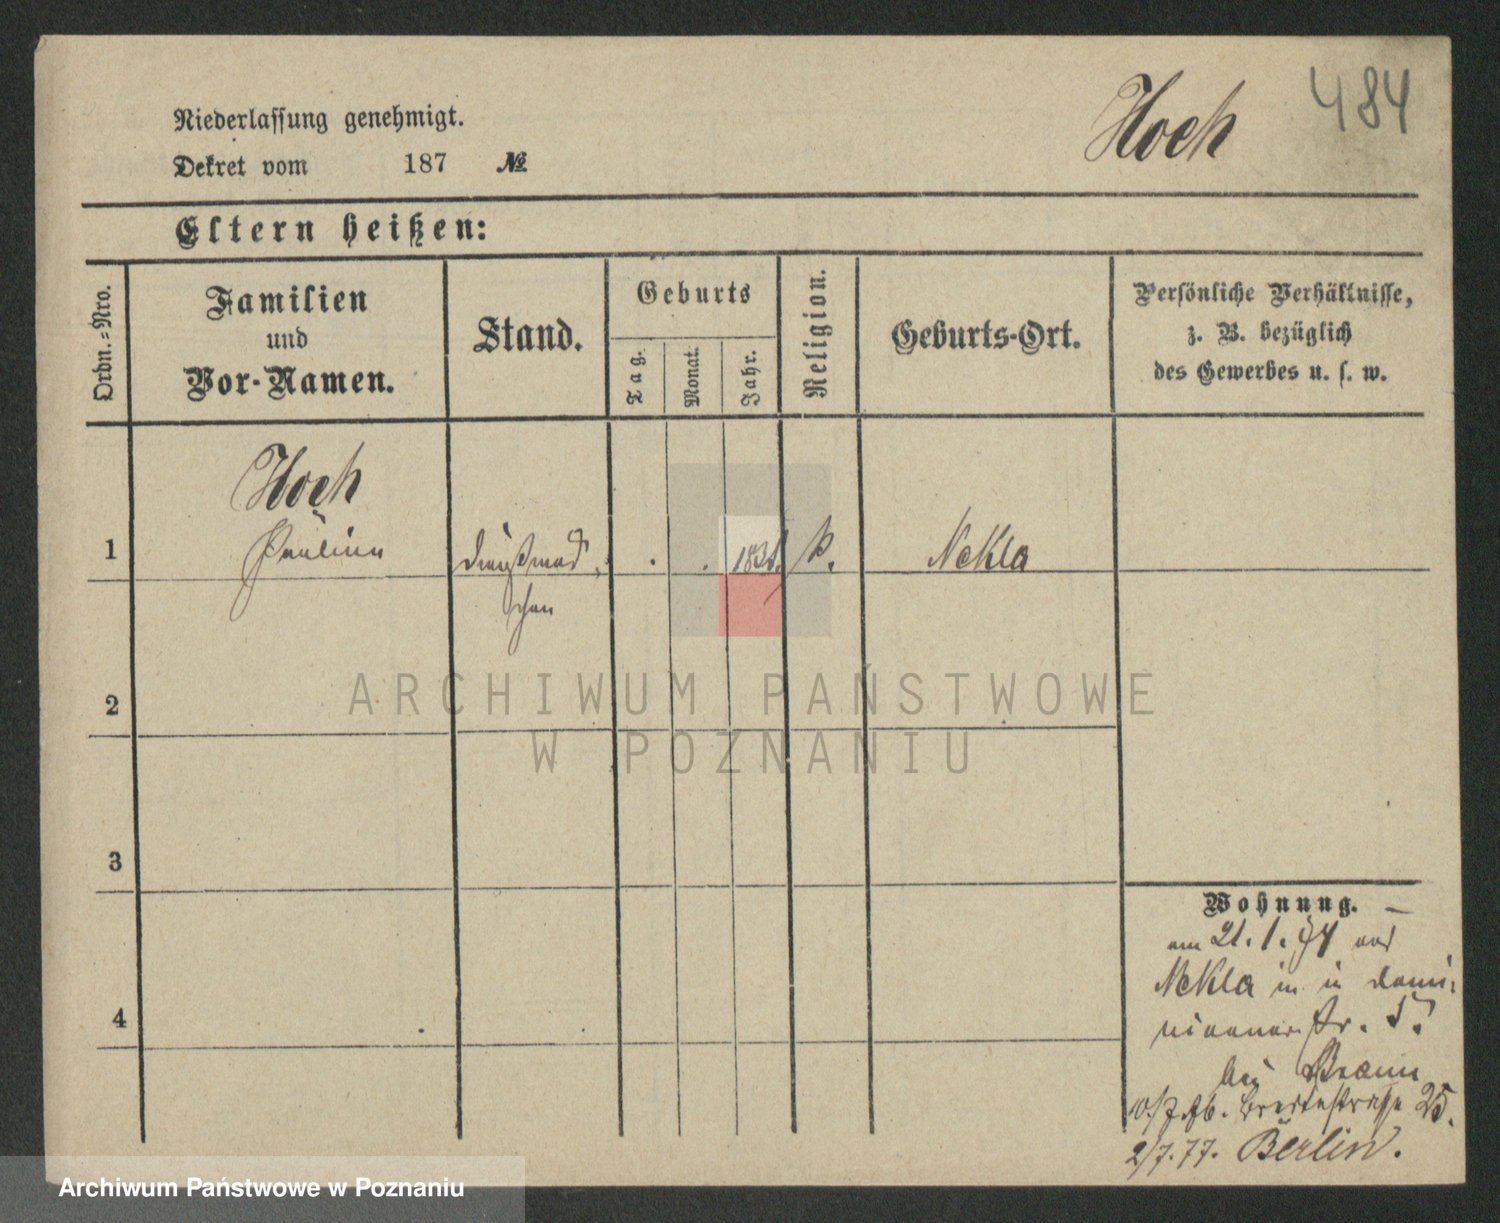 Hoch 484
Niederlassung genehmigt.
Dekret vom 187 №
Eltern heißen:
Ordn.-Nro.
Familien
und
Vor-Namen.
Stand.
Geburts
Tag.
Monat.
Jahr.
Religion.
Geburts-Ort.
Persönliche Verhältnisse,
z. B. bezüglich
des Gewerbes u. s. w.
Hoch
1 Pauline Dienstmäd 183 k. Nekla
chen
2
3
4
Wohnung. –
am 21. 1. 74 aus
Nekla in Domi-
nicaner str. 5.
bei Braun
10/7. 76. Breitestraße 25.
2/7. 77. Berlin.
ARCHIWUM PAŃSTWOWE
W POZNANIU
Archiwum Państwowe w Poznaniu